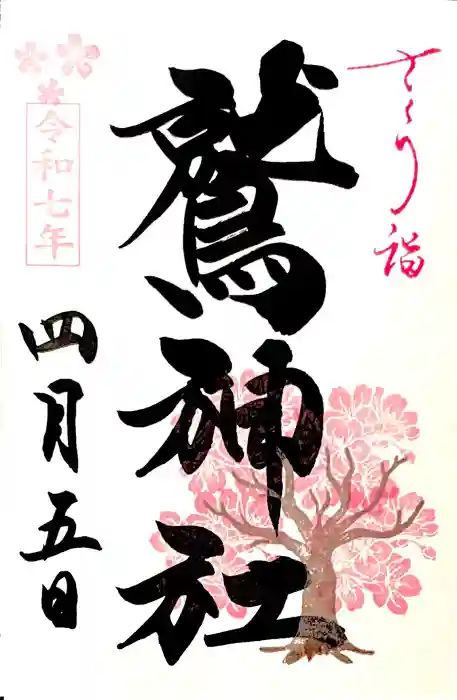 さくり詣
鷲神社
令和七年
四月五日